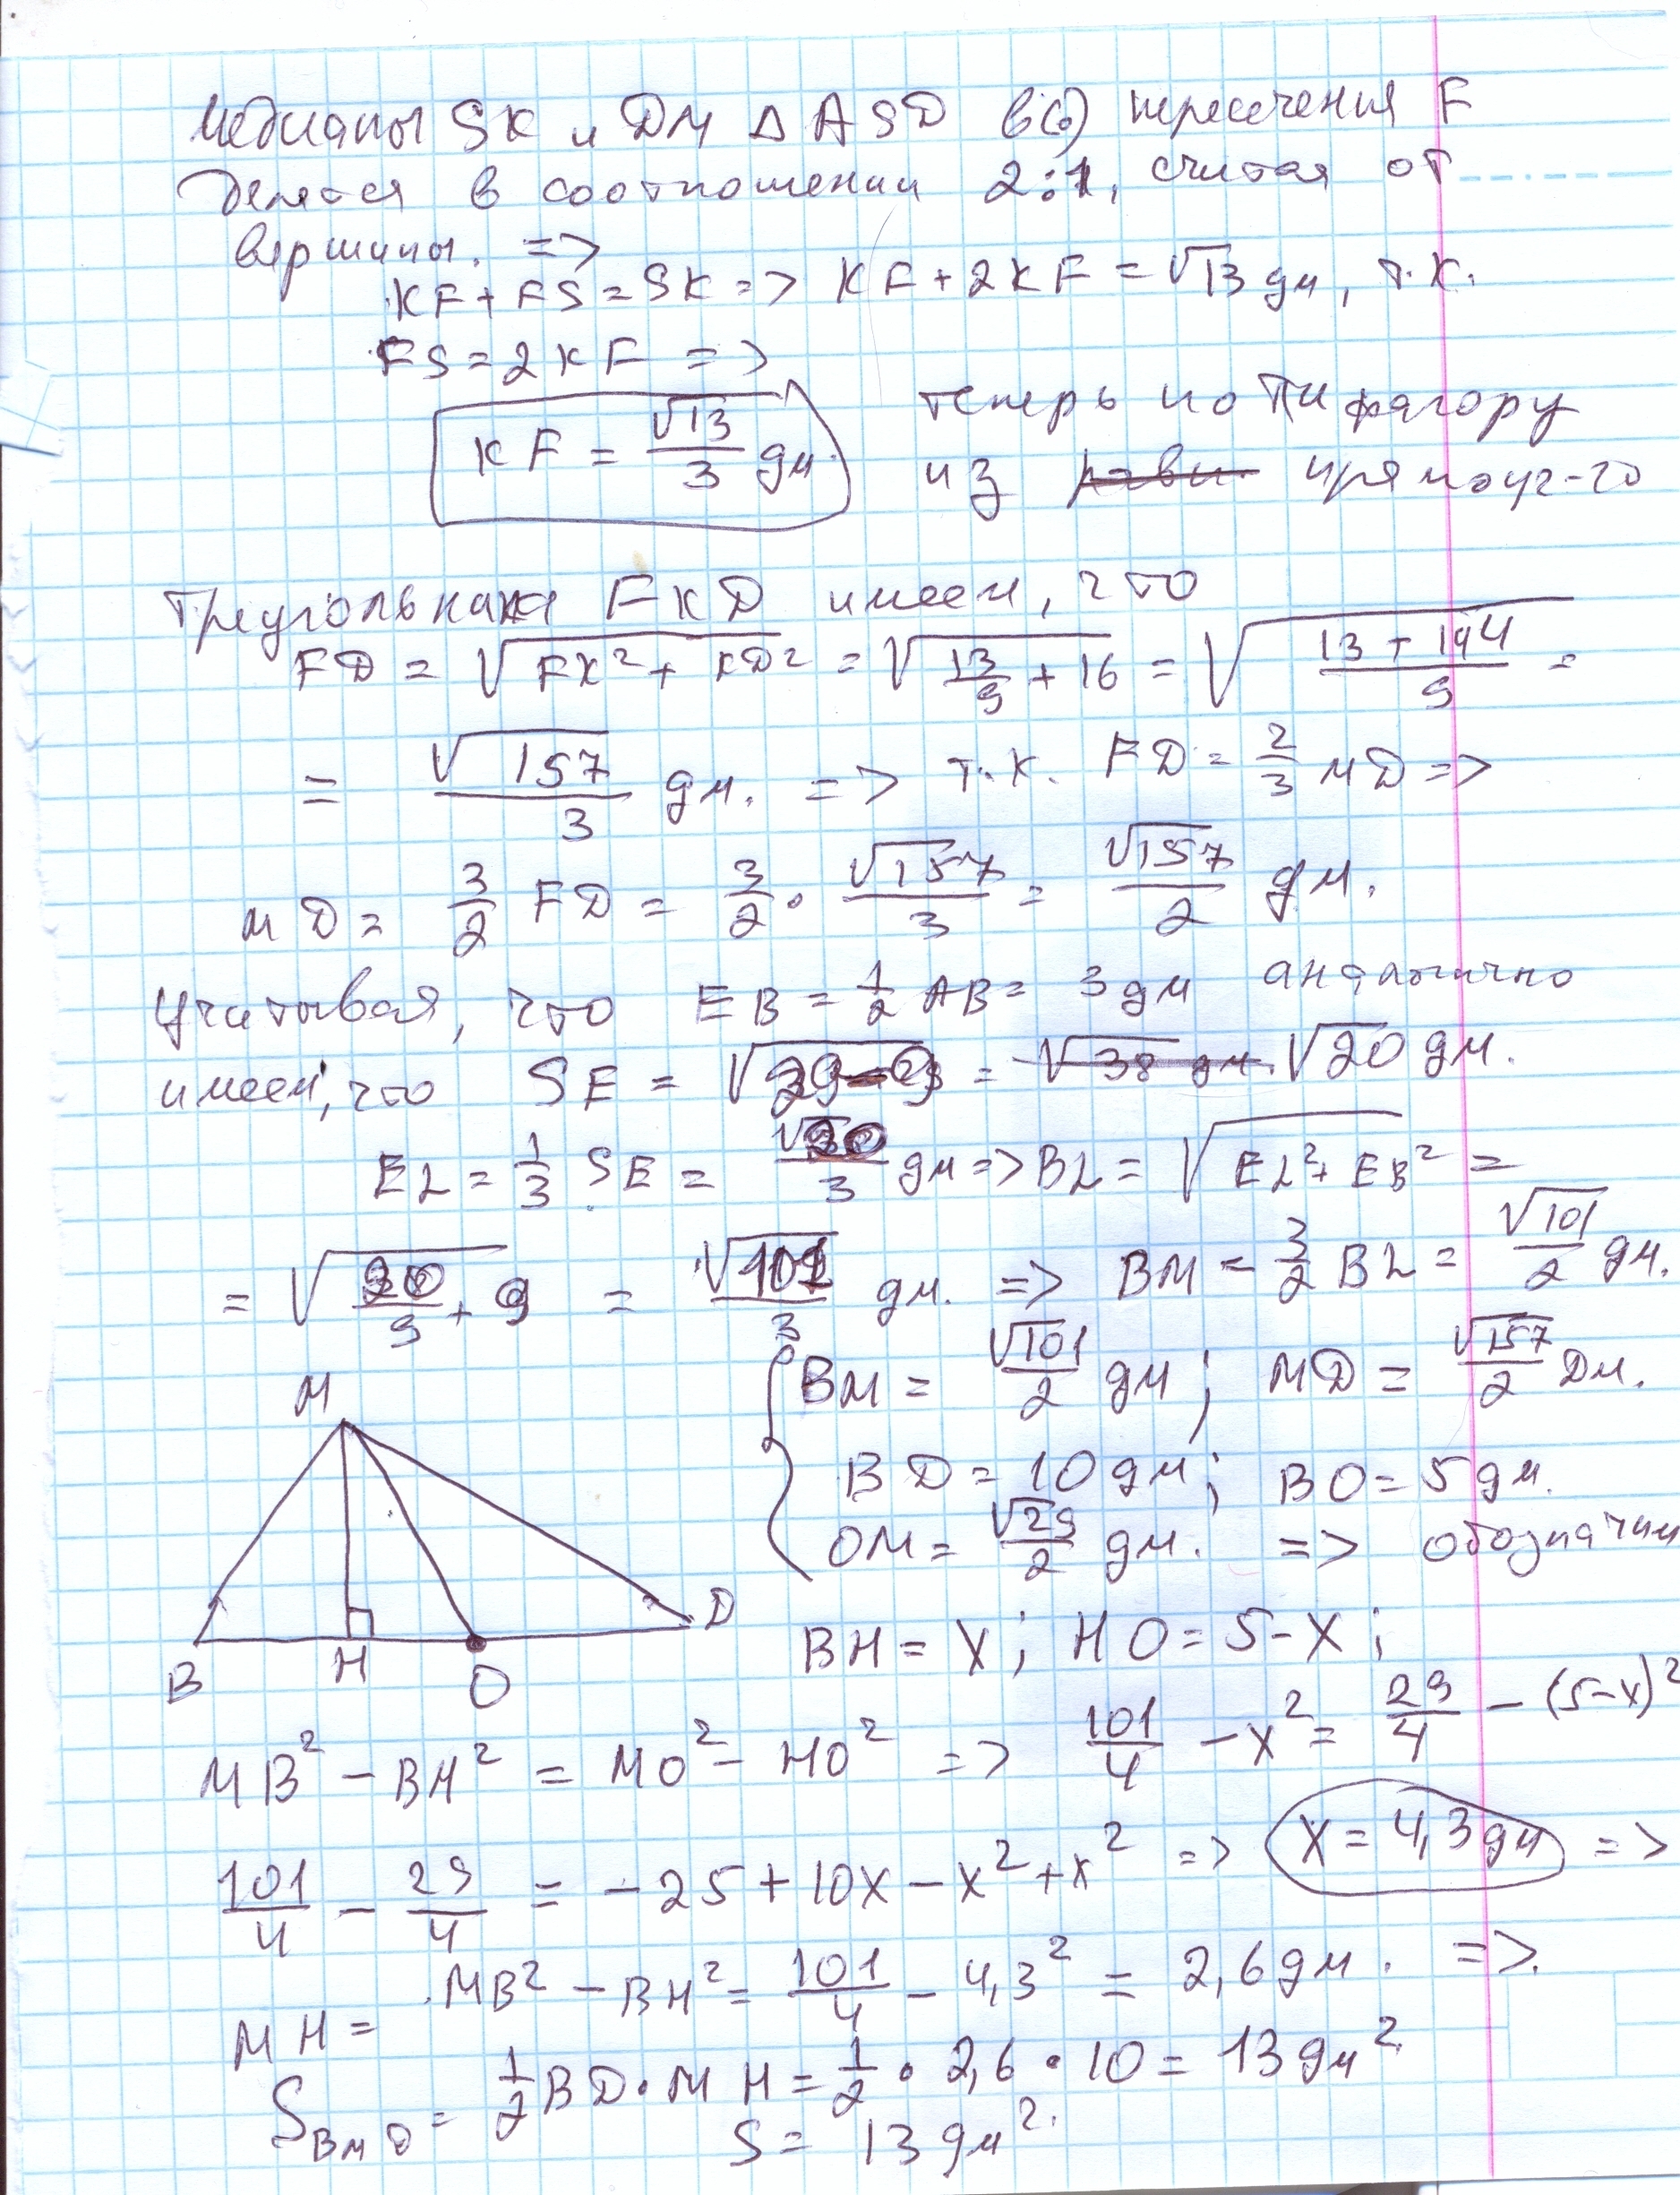 Медианы SK и DM △ ASD в(·) пересечения F
делятся в соотношении 2:1, считая от
вершины. =>
KF+FS=SK=> KF+2KF=√13 дм, т.к.
FS=2KF =>
KF = √13/3 дм.
теперь по Пифагору
из прямоуг-го
треугольника FKD имеем, что
FD = √(FK²+KD²) = √(13/9+16) = √((13+144)/9) =
= √157/3 дм. => т.к. FD = 2/3 MD =>
MD = 3/2 FD = 3/2 · √157/3 = √157/2 дм.
Учитывая, что EB = 1/2 AB = 3 дм аналогично
имеем, что SE = √(29-9) = √20 дм.
EL = 1/3 SE = √20/3 дм => BL = √(EL²+EB²) =
= √(20/9+9) = √101/3 дм. => BM = 3/2 BL = √101/2 дм.
BM = √101/2 дм; MD = √157/2 Dм.
BD = 10 дм; BO = 5 дм.
OM = √29/2 дм. => обозначим
M
B H O D
BH = X; HO = 5-X;
MB² - BH² = MO² - HO² => 101/4 - X² = 29/4 - (5-X)²
101/4 - 29/4 = -25+10X-X²+X² => X = 4,3 дм =>
MH = MB² - BH² = 101/4 - 4,3² = 2,6 дм. =>
S BMD = 1/2 BD·MH = 1/2 · 2,6 · 10 = 13 дм²
S = 13 дм².